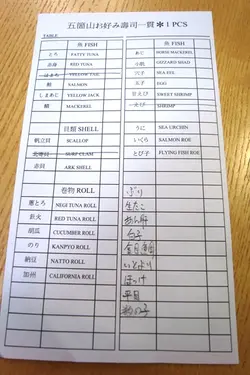 五閣山お好み壽司一貫✽1 PCS
TABLE
魚 FISH
とろ PATTY TUNA
赤身 RED TUNA
はまち YELLOW TAIL
鮭 SALMON
しまあじ YELLOW JACK
鯖 MACKEREL
貝類 SHELL
帆立貝 SCALLOP
北寄貝 SURF CLAM
赤貝 ARK SHELL
巻物 ROLL
葱とろ NEGI TUNA ROLL
鉄火 RED TUNA ROLL
胡瓜 CUCUMBER ROLL
のり KANPYO ROLL
納豆 NATTO ROLL
加州 CALIFORNIA ROLL
魚 FISH
あじ HORSE MACKEREL
小肌 GIZZARD SHAD
穴子 SEA EEL
玉子 EGG
甘えび SWEET SHRIMP
えび SHRIMP
うに SEA URCHIN
いくら SALMON ROE
とび子 FLYING FISH ROE
ぶり
生たこ
あん肝
白子
金目鯛
いとより
ほっけ
平目
数の子